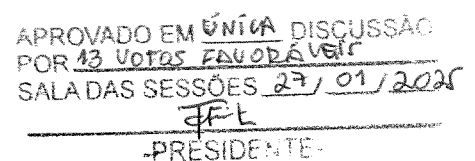 APROVADO EM ÚNICA DISCUSSÃO
POR 13 VOTOS FAVORÁVEIS
SALA DAS SESSÕES 27/01/2025
-PRESIDENTE-